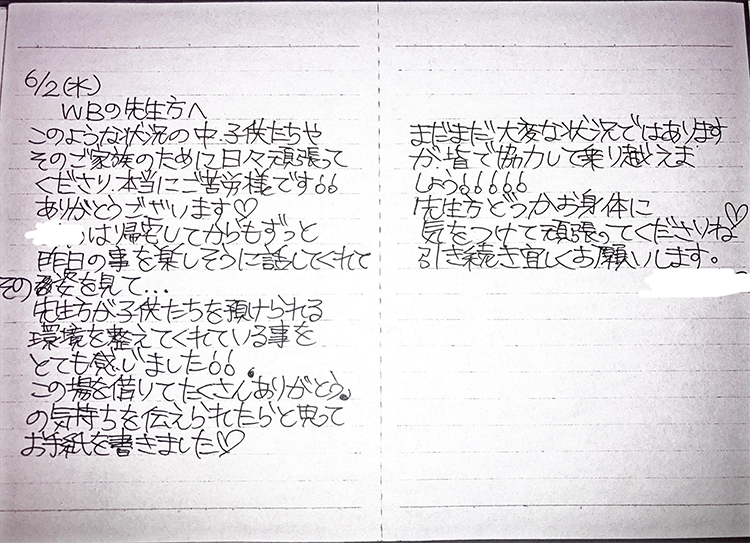 6/2(水)
WBの先生方へ
このような状況の中、子供たちや
そのご家族のために日々頑張って
くださり、本当にご苦労様です!!
ありがとうございます♡
は帰宅してからもずっと
昨日の事を楽しそうに話してくれて
その姿を見て...
先生方が子供たちを預けられる
環境を整えてくれている事を
とても感じました!!
この場を借りてたくさん"ありがとう"
の気持ちを伝えられたらと思って
お手紙を書きました♡
まだまだ大変な状況ではあります
が、皆で協力して乗り越えま
しょう!!!!!
先生方どうかお身体に
気をつけて頑張ってくださいね♡
引き続き宜しくお願いします。